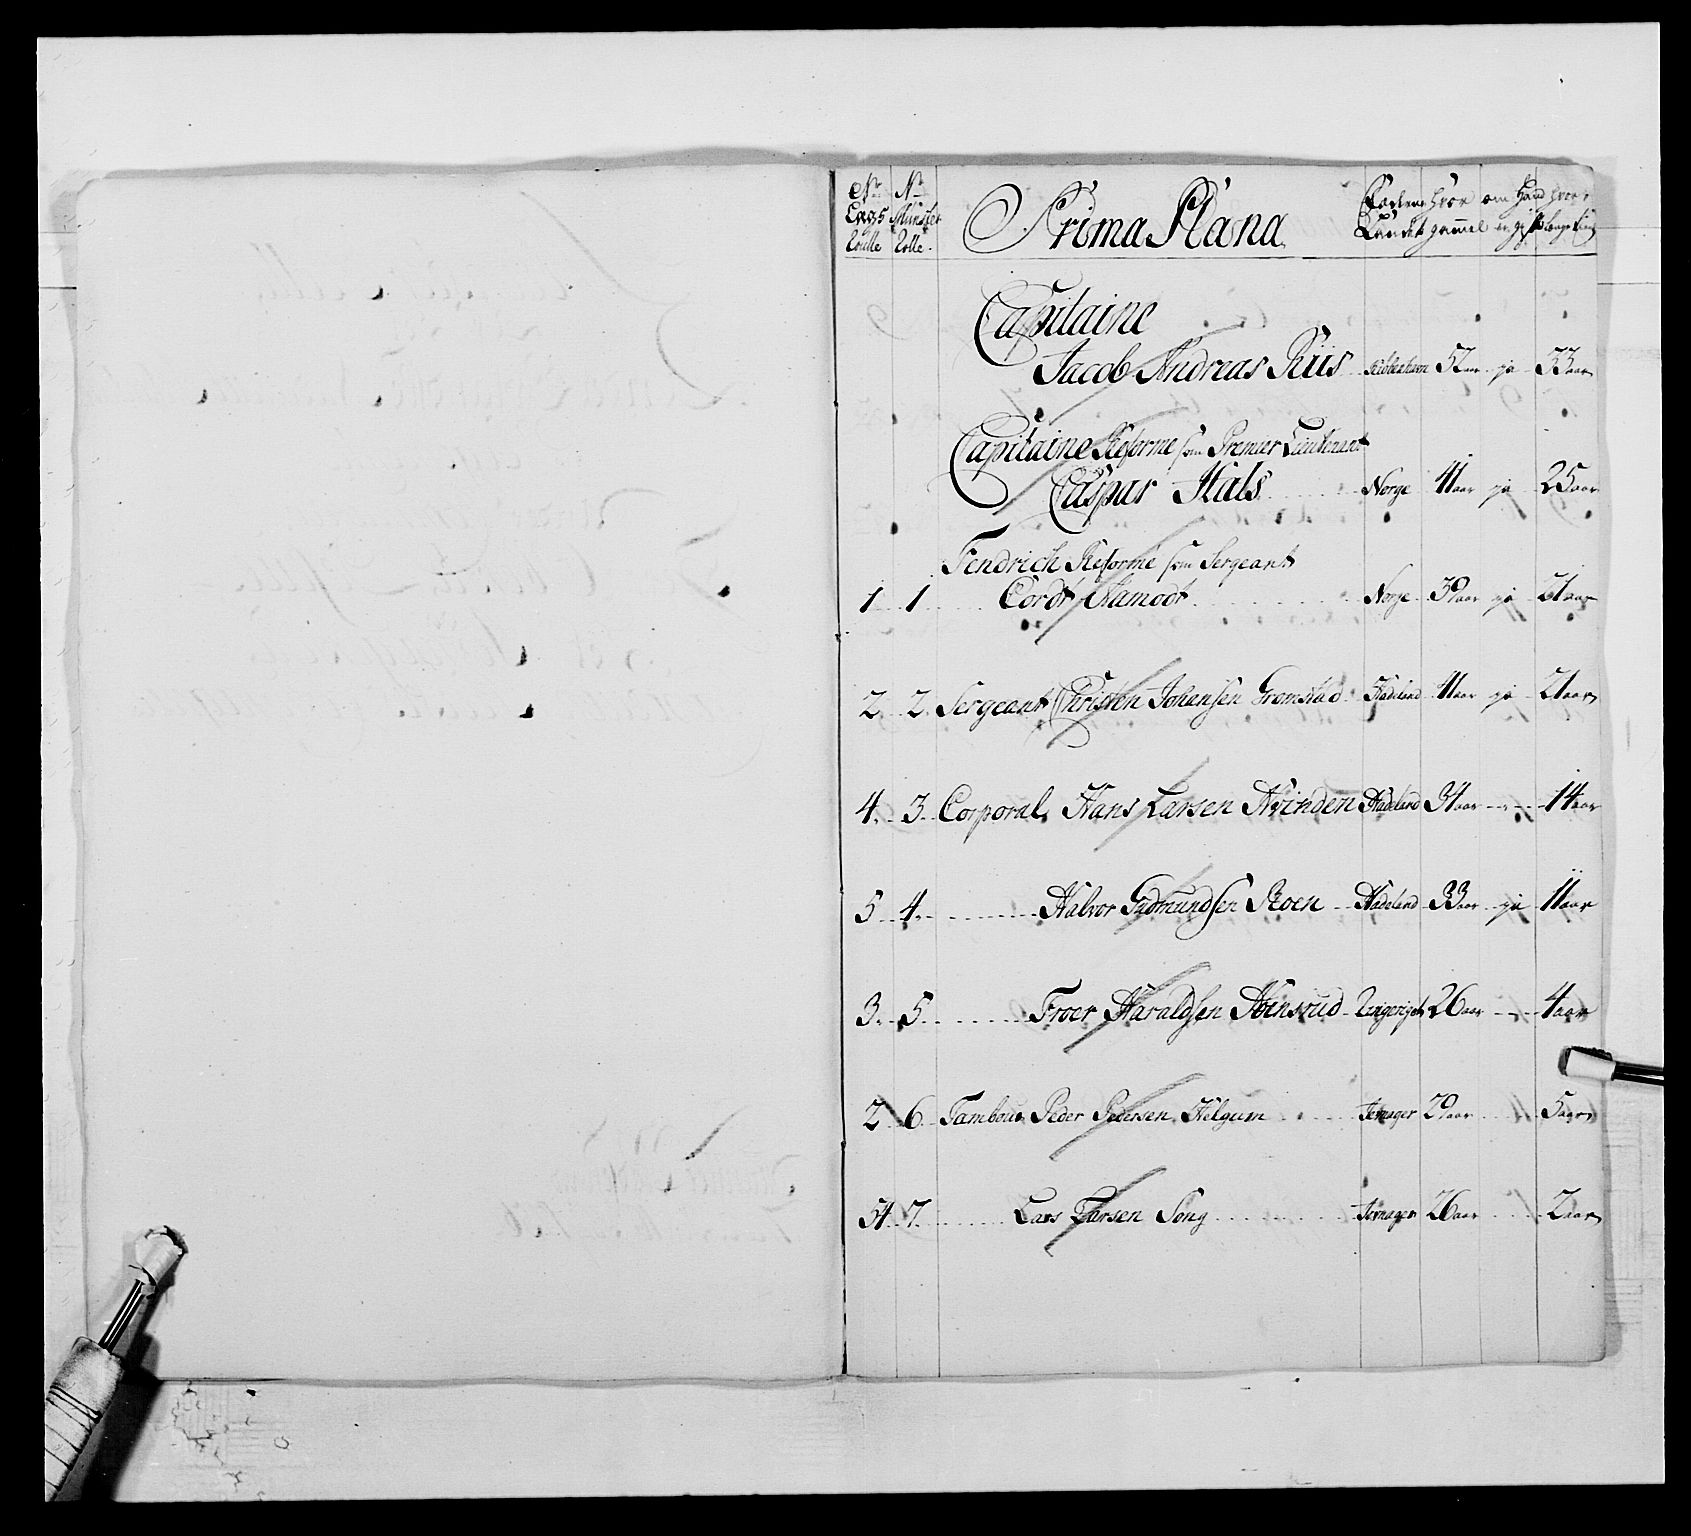 No No Prima Plana Fædrene hvor om Hand hvor
Corps Mönster Landet gammel er gift lenge tient
Rulle Rolle.
Capitaine
Jacob Andreas Riis Kiöbenhavn 57 aar ja 33 aar
Capitaine Reforme som Premier Lieutenant
Caspar Hals Norge 41 aar ja 25 aar
Fendrich Reforme som Sergeant
1 1 Cordt Hamodt Norge 39 aar ja 21 aar
2 2 Sergeant Christen Johansen Gromstad Hadeland 41 aar ja 21 aar
4 3 Corporal Hans Larsen Hvinden Hadeland 34 aar 14 aar
5 4 Halvor Gudmundsen Roen Hadeland 33 aar ja 11 aar
3 5 Froer Haraldsen Hvinsrud Ringeriget 26 aar 4 aar
2 6 Tambour Peder Pedersen Helgum Jevnager 29 aar 5 aar
54 7 Lars Larsen Song Jevnager 26 aar 2 aar